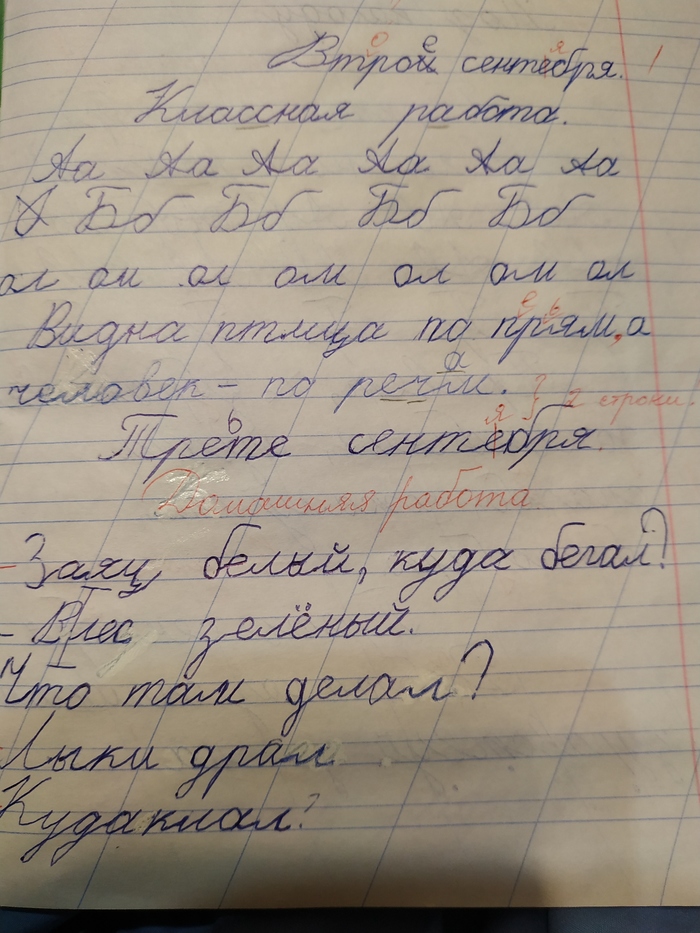 Втрой сентебря.
Классная работа.
Аа Аа Аа Аа Аа Аа
Бб Бб Бб Бб
ол ом ол ом ол ом ол
Видна птица по прям, а
человек – по речам. } 2 строки.
Третье сентября.
Домашняя работа
- Заяц белый, куда бегал?
- В лес зелёный.
Что там делал?
- Лыки драл
Куда клал?